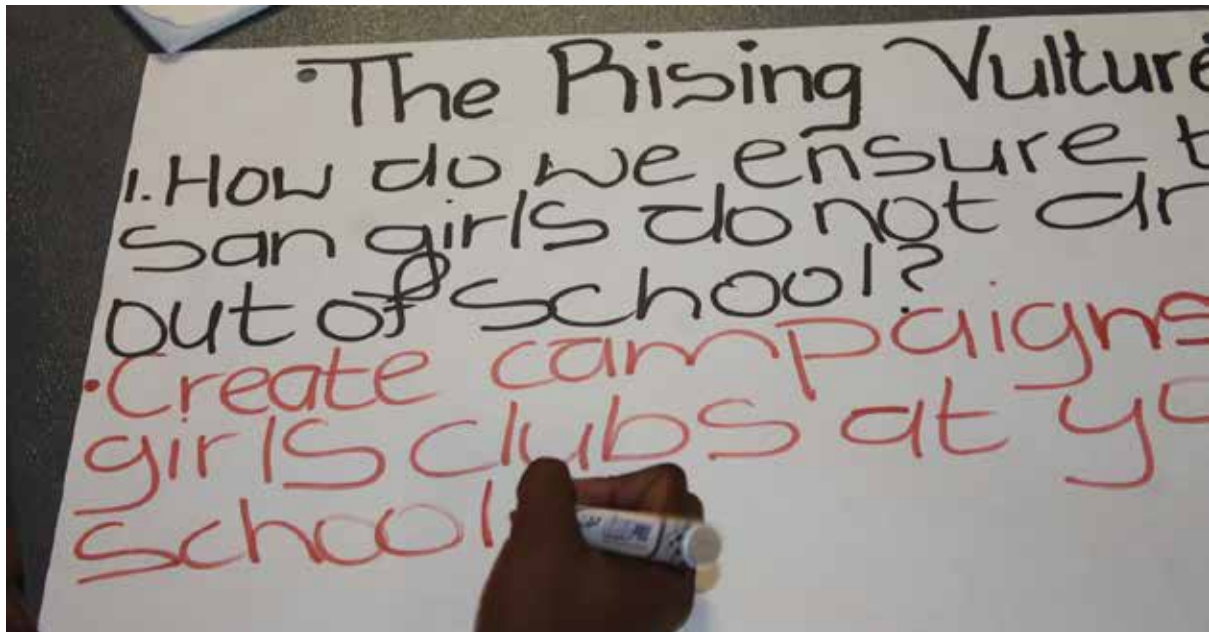 •The Rising Vulture
1. How do we ensure t
san girls do not dr
out of school?
•Create campaigns
girls clubs at yo
school